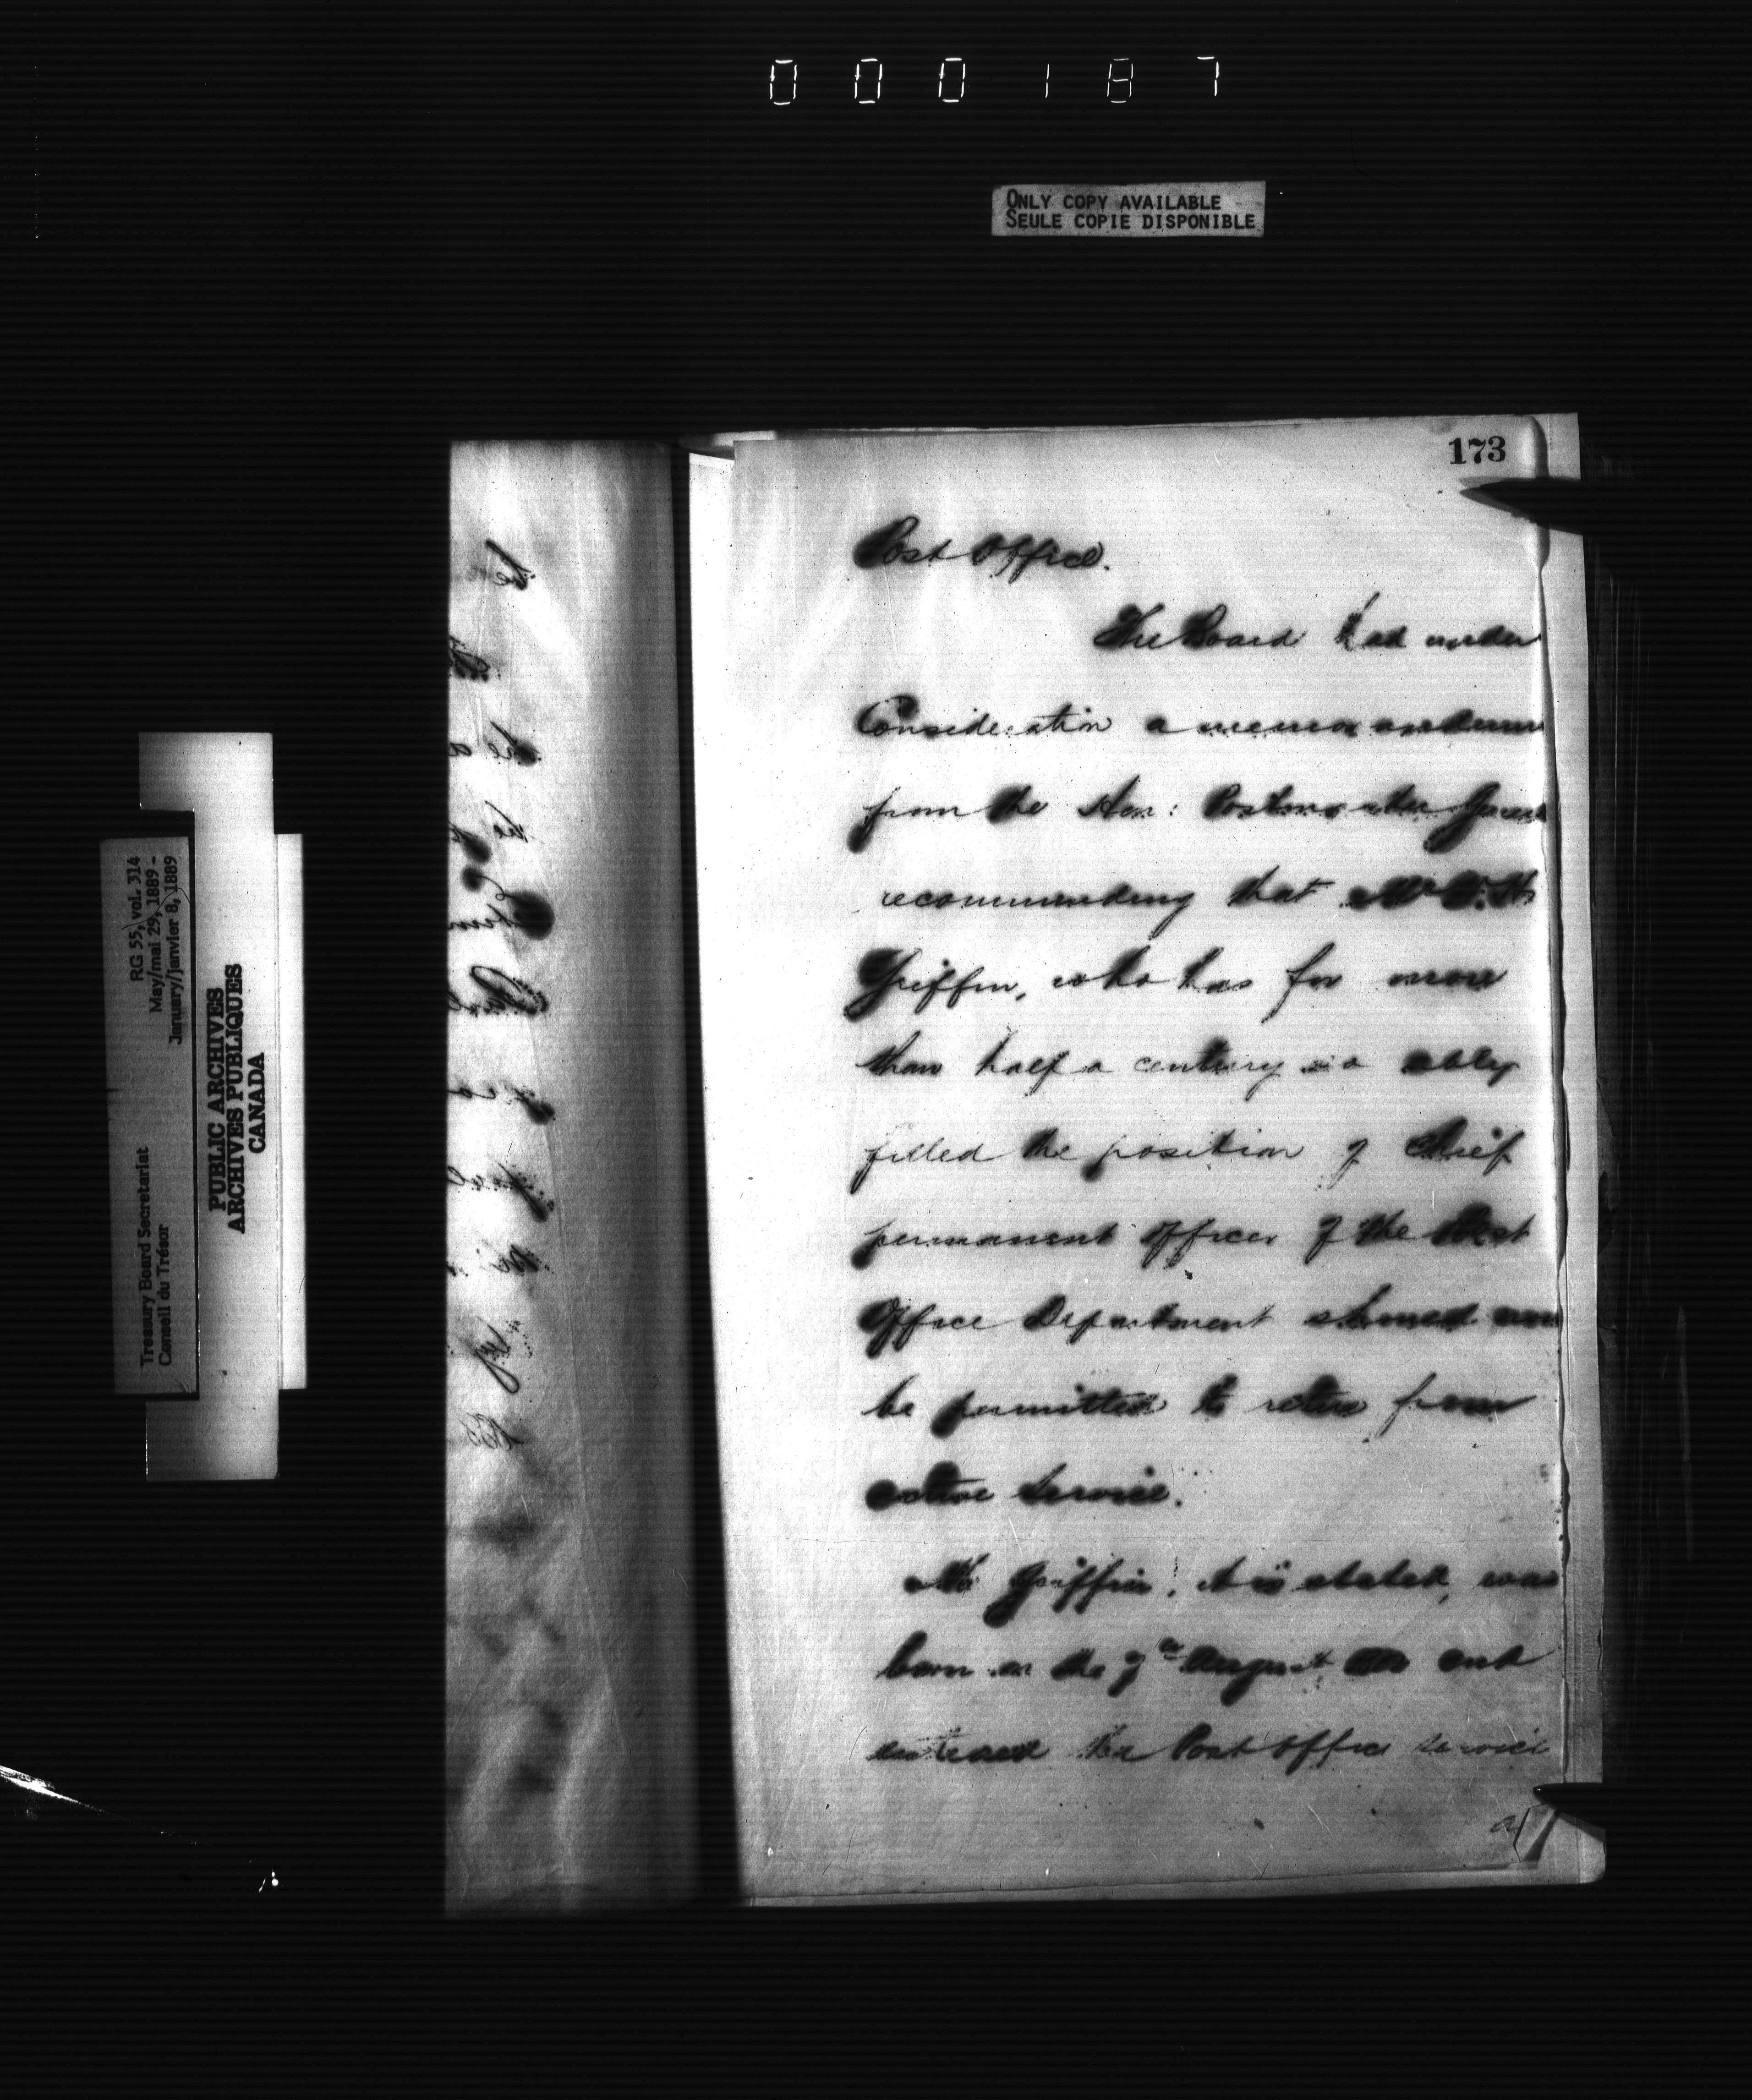 000187
ONLY COPY AVAILABLE
SEULE COPIE DISPONIBLE
173
Post Office.
The Board had under
Consideration a memorandum
from the Hon: Postmaster General
recommending that Mr W. H.
Griffin, who has for more
than half a century so ably
filled the position of Chief
permanent officer of the Post
Office Department should now
be permitted to retire from
active service.
Mr Griffin, it is stated, was
born on the August and
entered the Post Office service
RG 55, vol. 314
May/mai 29, 1889 -
January/janvier 8, 1889
Treasury Board Secretariat
Conseil du Trésor
PUBLIC ARCHIVES
ARCHIVES PUBLIQUES
CANADA